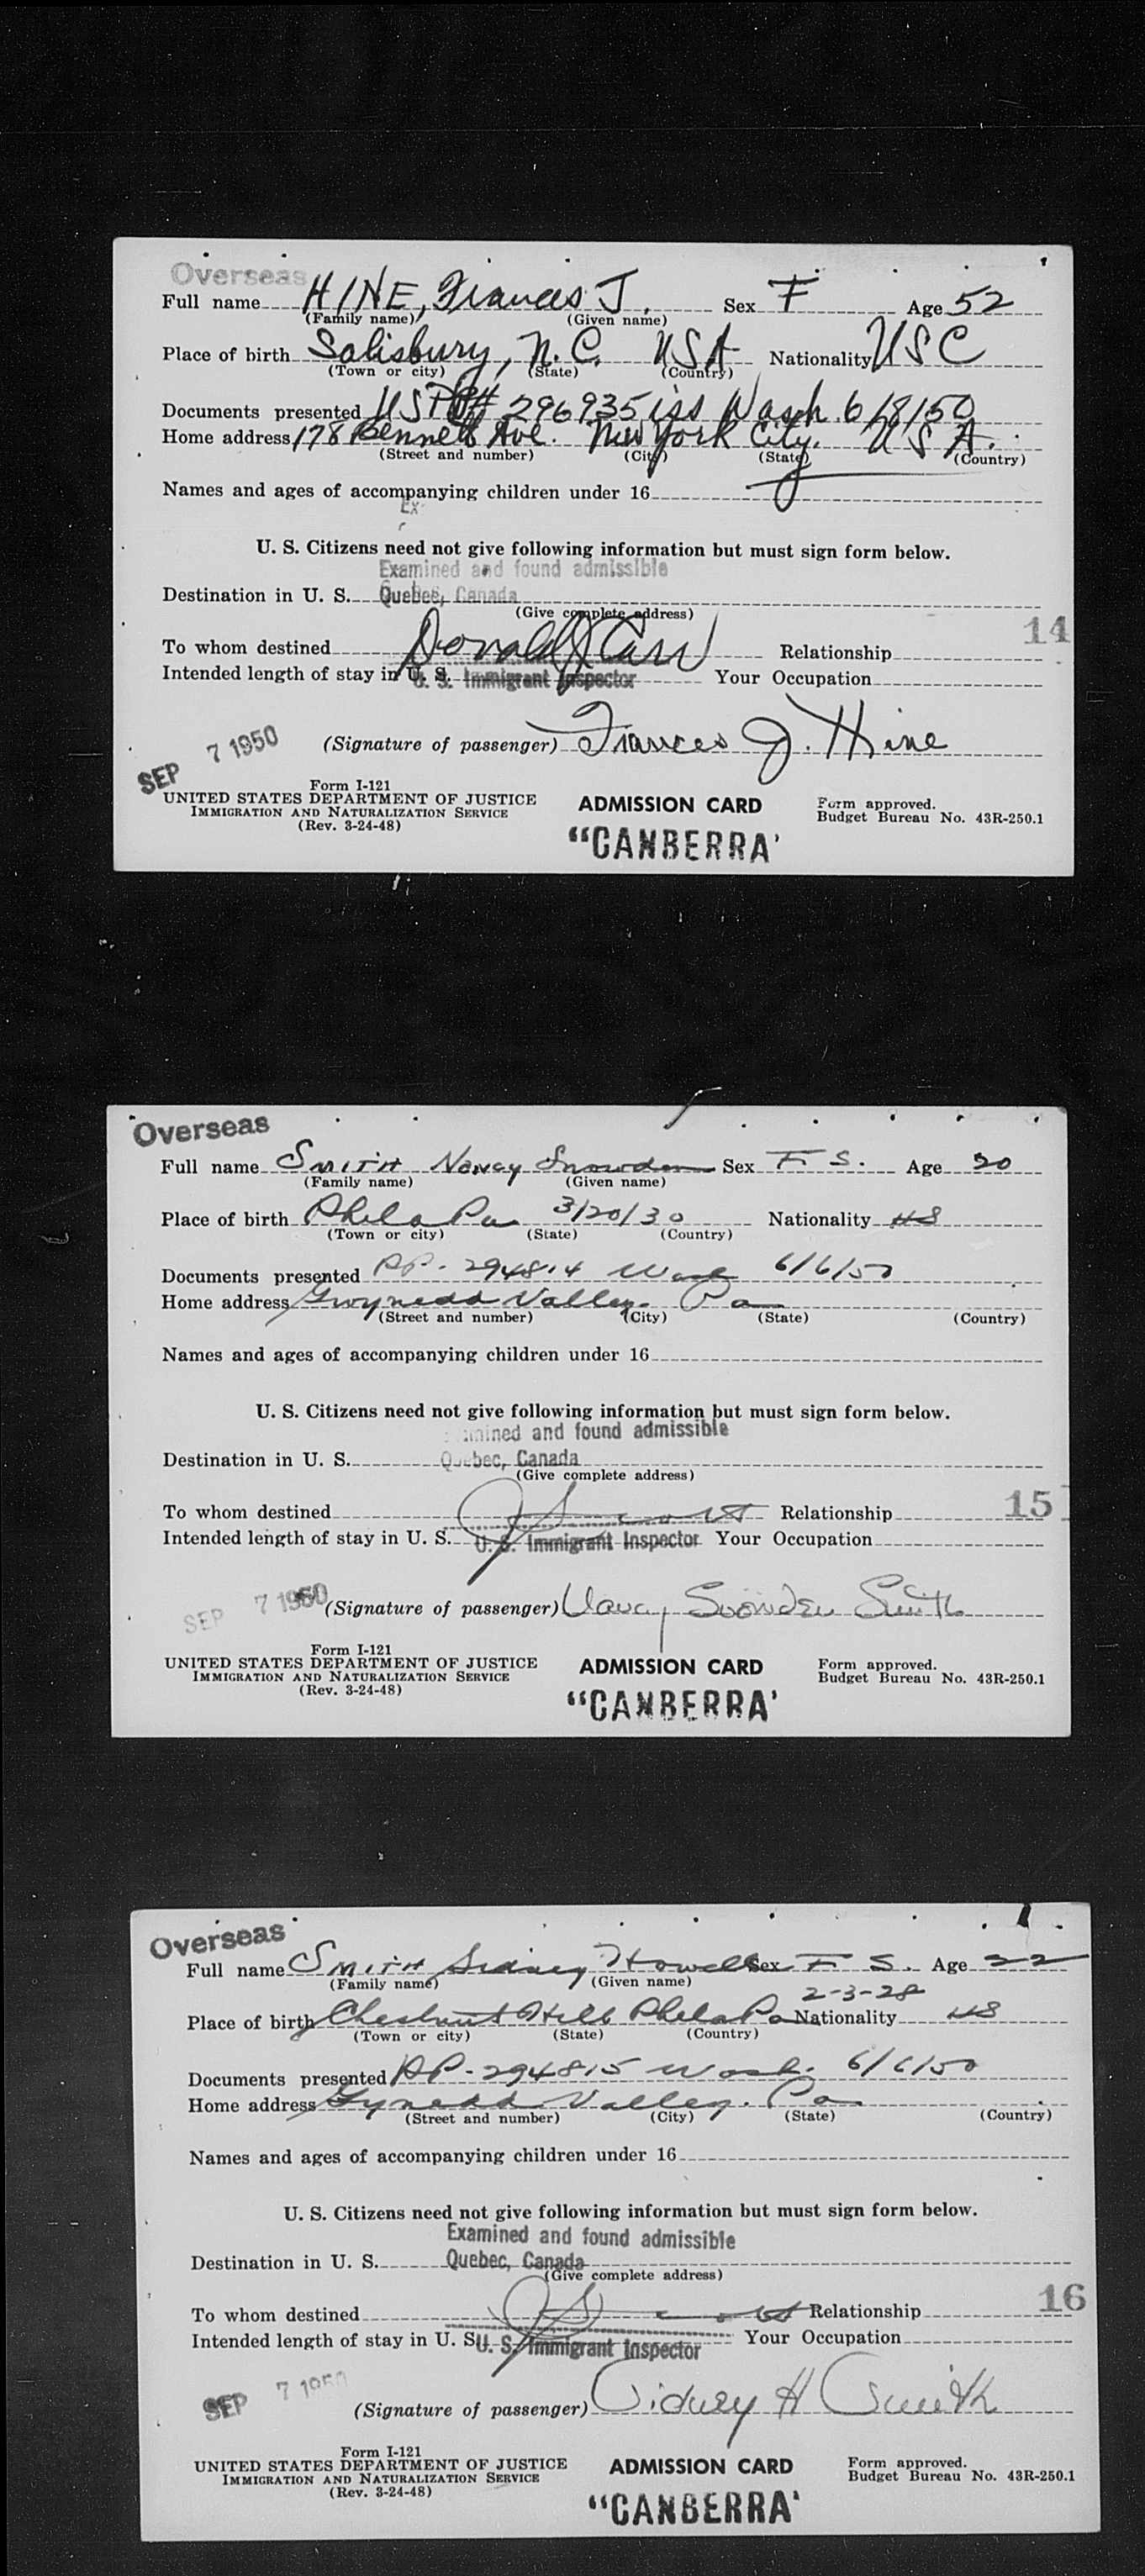 Overseas
Full name HINE, Frances J. Sex F Age 52
(Family name) (Given name)
Place of birth Salisbury, N.C. USA Nationality USC
(Town or city) (State) (Country)
Documents presented USPP# 296935 iss Wash. 6/8/50
Home address 178 Bennett Ave. New York City. U S A.
(Street and number) (City) (State) (Country)
Names and ages of accompanying children under 16
Ex
U. S. Citizens need not give following information but must sign form below.
Examined and found admissible
Destination in U. S. Quebec, Canada
(Give complete address)
14
To whom destined Donald J Carr Relationship
Intended length of stay in U. S. U. S. Immigrant Inspector Your Occupation
SEP 7 1950 (Signature of passenger) Frances J. Hine
Form I-121
UNITED STATES DEPARTMENT OF JUSTICE ADMISSION CARD Form approved.
IMMIGRATION AND NATURALIZATION SERVICE Budget Bureau No. 43R-250.1
(Rev. 3-24-48)
"CANBERRA'
Overseas
Full name SMITH Nancy Snowden Sex F S. Age 20
(Family name) (Given name)
Place of birth Phila Pa 3/20/30 Nationality US
(Town or city) (State) (Country)
Documents presented PP- 294814 Wash 6/6/50
Home address Gwynedd Valley. Pa
(Street and number) (City) (State) (Country)
Names and ages of accompanying children under 16
U. S. Citizens need not give following information but must sign form below.
mined and found admissible
Destination in U. S. Quebec, Canada
(Give complete address)
15
To whom destined Relationship
Intended length of stay in U. S. U. S. Immigrant Inspector Your Occupation
SEP 7 1950 (Signature of passenger) Nancy Snowden Smith
Form I-121
UNITED STATES DEPARTMENT OF JUSTICE ADMISSION CARD Form approved.
IMMIGRATION AND NATURALIZATION SERVICE Budget Bureau No. 43R-250.1
(Rev. 3-24-48)
"CANBERRA'
Overseas
Full name SMITH Sidney Howell Sex F S. Age 22
(Family name) (Given name)
2-3-28
Place of birth Chestnut Hill Phila Pa Nationality US
(Town or city) (State) (Country)
Documents presented PP- 294815 Wash. 6/6/50
Home address Gynedd Valley. Pa
(Street and number) (City) (State) (Country)
Names and ages of accompanying children under 16
U. S. Citizens need not give following information but must sign form below.
Examined and found admissible
Destination in U. S. Quebec, Canada
(Give complete address)
16
To whom destined Relationship
Intended length of stay in U. S. U. S. Immigrant Inspector Your Occupation
SEP 7 1950 (Signature of passenger) Sidney H Smith
Form I-121
UNITED STATES DEPARTMENT OF JUSTICE ADMISSION CARD Form approved.
IMMIGRATION AND NATURALIZATION SERVICE Budget Bureau No. 43R-250.1
(Rev. 3-24-48)
"CANBERRA'